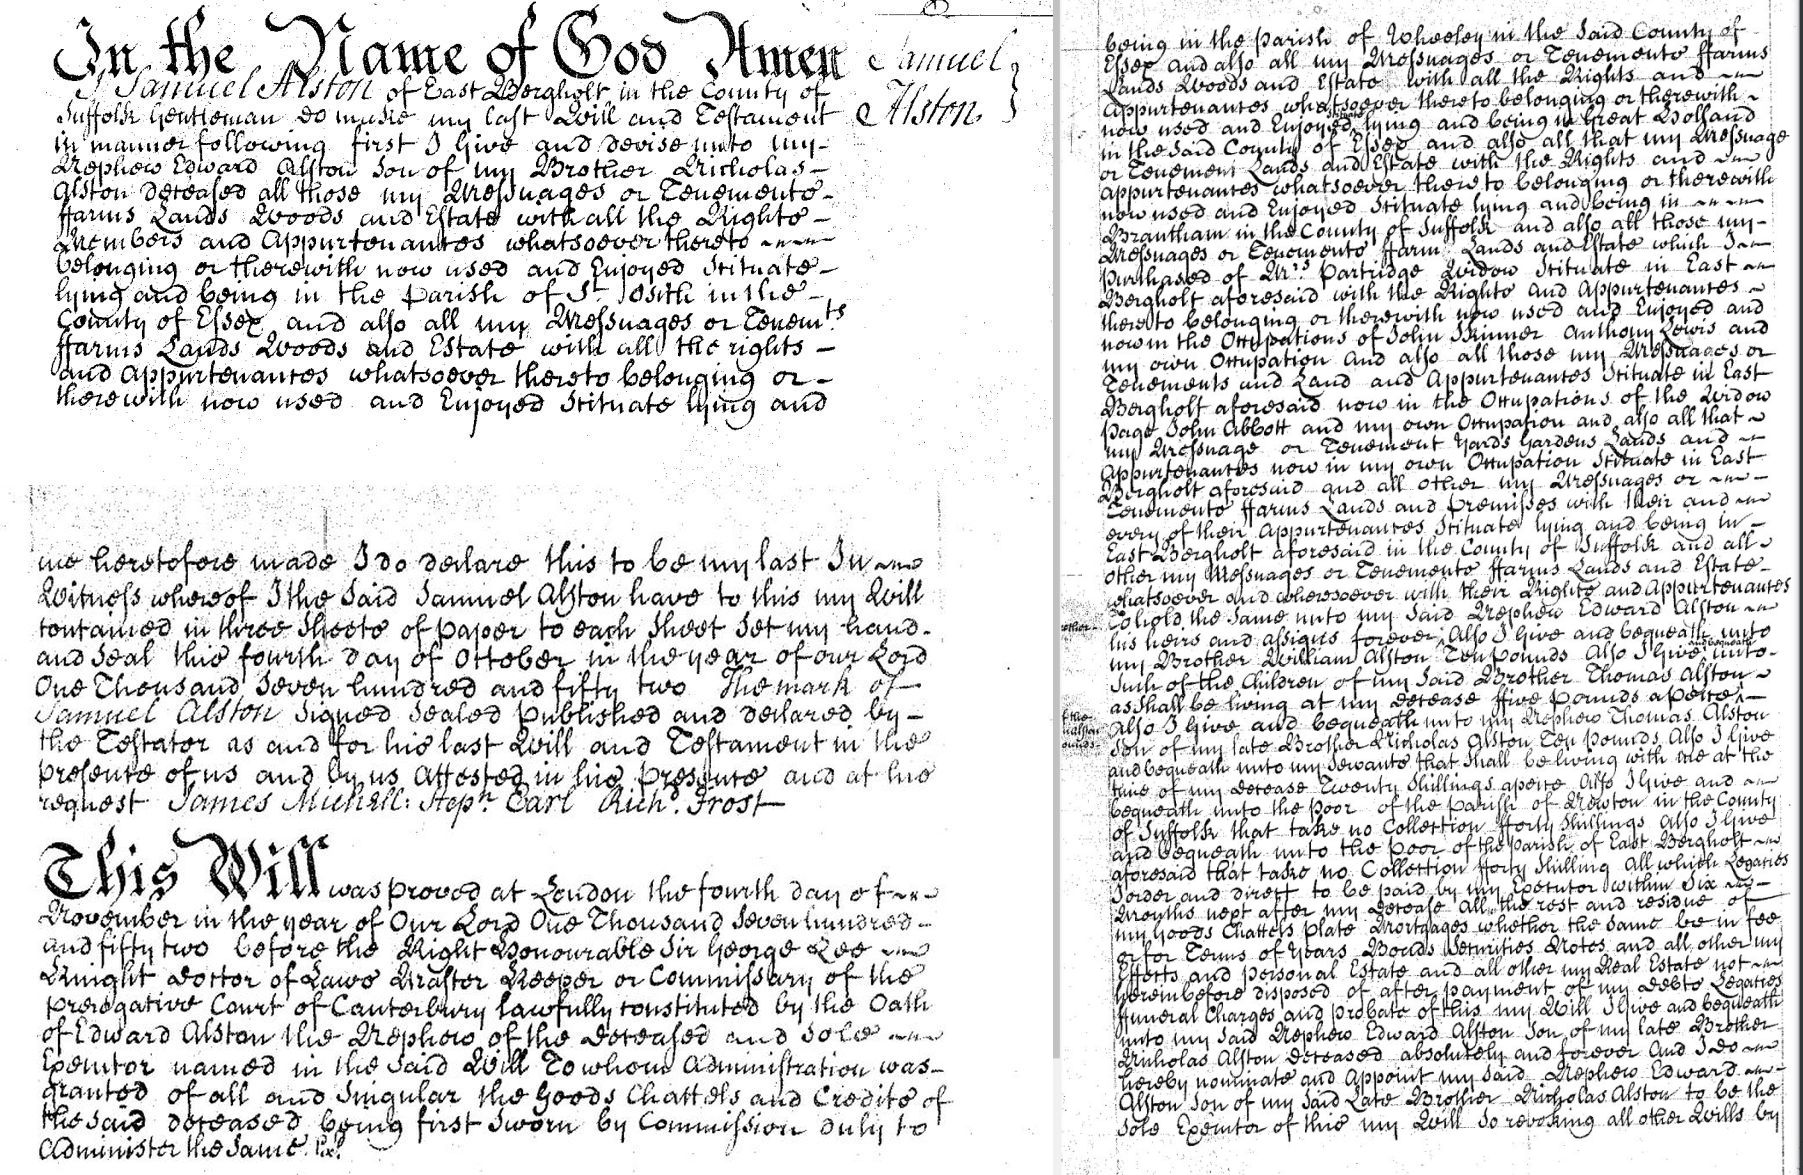 In the Name of God Amen
I Samuel Alston of East Bergholt in the County of
Suffolk Gentleman do make my last Will and Testament
in manner following first I Give and devise unto my
Nephew Edward Alston Son of my Brother Nicholas
Alston deceased all those my Messuages or Tenements
ffarms Lands Woods and Estate with all the Rights
Members and Appurtenances whatsoever thereto
belonging or therewith now used and Enjoyed Scituate
lying and being in the Parish of St. Osith in the
County of Essex and also all my Messuages or Tenemts
ffarms Lands Woods and Estate with all the rights
and Appurtenances whatsoever thereto belonging or
therewith now used and Enjoyed Scituate lying and
Samuel
Alston
being in the Parish of Wheeley in the Said County of
Essex and also all my Messuages or Tenements ffarms
Lands Woods and Estate with all the Rights and
Appurtenances whatsoever thereto belonging or therewith
now used and Enjoyed Scituate lying and being in Great Holland
in the Said County of Essex and also all that my Messuage
or Tenement Lands and Estate with the Rights and
Appurtenances whatsoever thereto belonging or therewith
now used and Enjoyed Scituate lying and being in
Brantham in the County of Suffolk and also all those my
Messuages or Tenements ffarm Lands and Estate which I
Purchased of Mrs. Partridge Widow Scituate in East
Bergholt aforesaid with the Rights and Appurtenances
thereto belonging or therewith now used and Enjoyed and
now in the Occupations of John Skinner Anthony Lewis and
my own Occupation and also all those my Messuages or
Tenements and Land and Appurtenances Scituate in East
Bergholt aforesaid now in the Occupations of the Widow
Page John Abbott and my own Occupation and also all that
my Messuage or Tenement Yards Gardens Lands and
Appurtenances now in my own Occupation Scituate in East
Bergholt aforesaid and all other my Messuages or
Tenements ffarms Lands and Premisses with their and
every of their Appurtenances Scituate lying and being in
East Bergholt aforesaid in the County of Suffolk and all
other my Messuages or Tenements ffarms Lands and Estate
whatsoever and wheresoever with their Rights and Appurtenances
To hold the Same unto my Said Nephew Edward Alston
his heirs and assigns forever Also I Give and bequeath unto
my Brother William Alston Ten Pounds Also I Give and bequeath unto
Such of the Children of my Said Brother Thomas Alston
as Shall be living at my decease ffive Pounds apeice
Also I Give and bequeath unto my Nephew Thomas Alston
Son of my late Brother Nicholas Alston Ten Pounds Also I Give
and bequeath unto my Servants that Shall be living with me at the
time of my decease Twenty Shillings apeice Also I Give and
bequeath unto the poor of the Parish of Newton in the County
of Suffolk that take no Collection fforty Shillings Also I Give
and bequeath unto the poor of the Parish of East Bergholt
aforesaid that take no Collection fforty Shilling All which Legacies
I order and direct to be paid by my Executor within Six
Months next after my decease All the rest and residue of
my Goods Chattels Plate Mortgages whether the same be in fee
or for Terms of Years Bonds Securities Notes and all other my
Effects and personal Estate and all other my Real Estate not
herembefore disposed of after payment of my Debts Legacies
ffuneral Charges and probate of this my Will I Give and bequeath
unto my Said Nephew Edward Alston Son of my late Brother
Nicholas Alston deceased absolutely and forever And I do
hereby nominate and Appoint my Said Nephew Edward
Alston Son of my Said Late Brother Nicholas Alston to be the
Sole Executor of this my Will So revoking all other Wills by
me heretofore made I do declare this to be my last In
Witness whereof I the Said Samuel Alston have to this my Will
contained in three Sheets of paper to each Sheet Set my hand
and Seal this fourth day of October in the year of our Lord
One Thousand Seven hundred and fifty two The mark of
Samuel Alston Signed Sealed Published and declared by
the Testator as and for his last Will and Testament in the
presence of us and by us Attested in his Presence and at his
request James Michell: Stepn. Earl Richd. Frost
This Will was proved at London the fourth day of
November in the year of Our Lord One Thousand Seven hundred
and fifty two before the Right Honourable Sir George Lee
Knight Doctor of Laws Master Keeper or Commissary of the
Prerogative Court of Canterbury lawfully constituted by the Oath
of Edward Alston the Nephew of the deceased and Sole
Executor named in the Said Will To whom Administration was
granted of all and Singular the Goods Chattels and Credits of
the said deceased being first Sworn by Commission duly to
Administer the Same